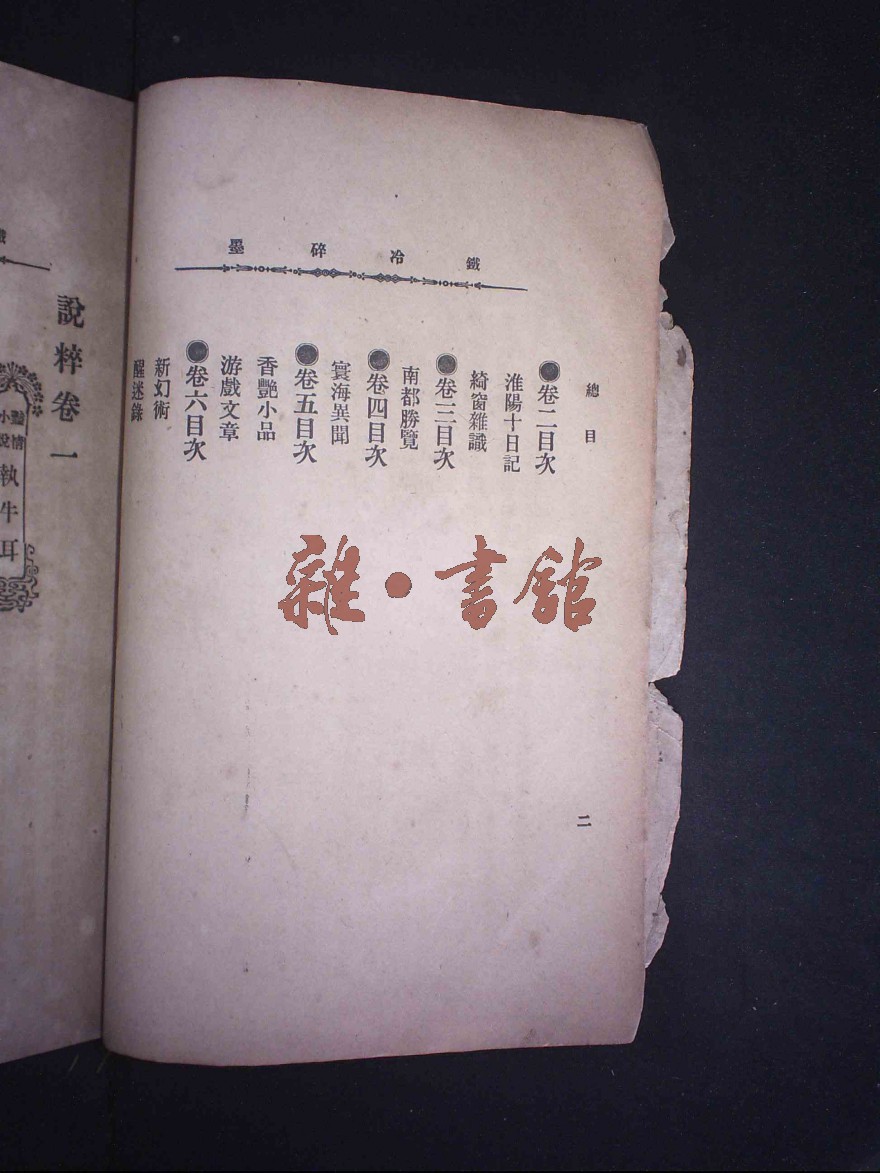 鐵冷碎墨
總目
●卷二目次
淮陽十日記
綺窗雜識
●卷三目次
南都勝覽
●卷四目次
寰海異聞
●卷五目次
香艷小品
游戲文章
●卷六目次
新幻術
醒迷錄
二
雜·書館
說粹卷一
執牛耳